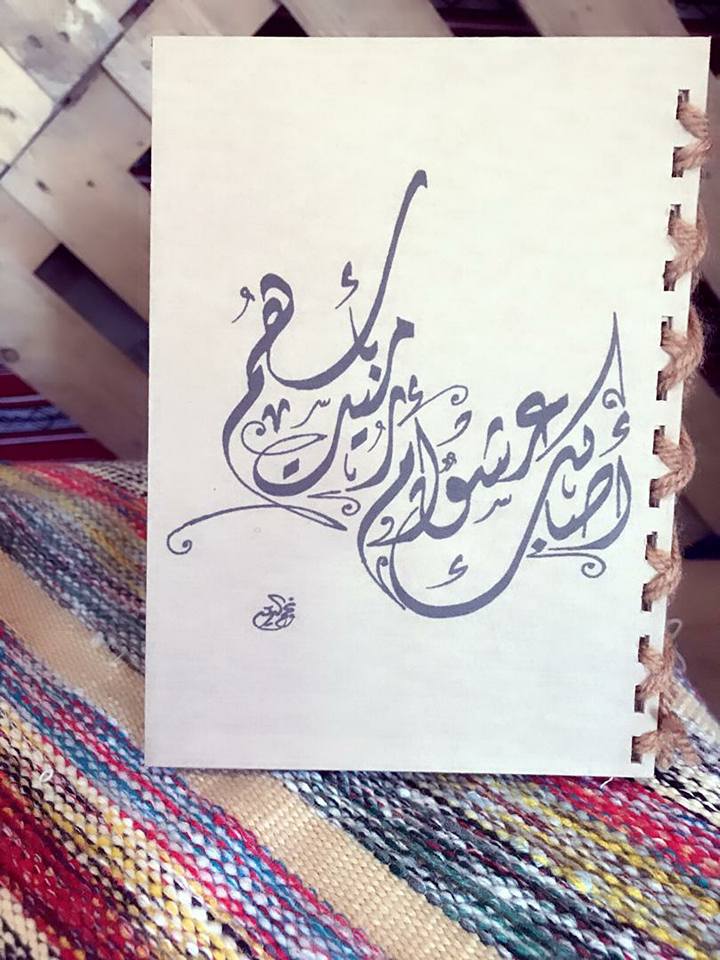 أصابك عشق أم رميت بأسهم